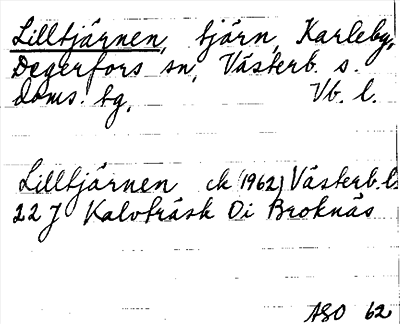 Lilltjärnen, tjärn, Karleby,
Degerfors sn, Västerb. s.
doms. tg, Vb. l.
Lilltjärnen ek (1962) Västerb. l
22 J Kalvträsk Di Broknäs
ASO 62